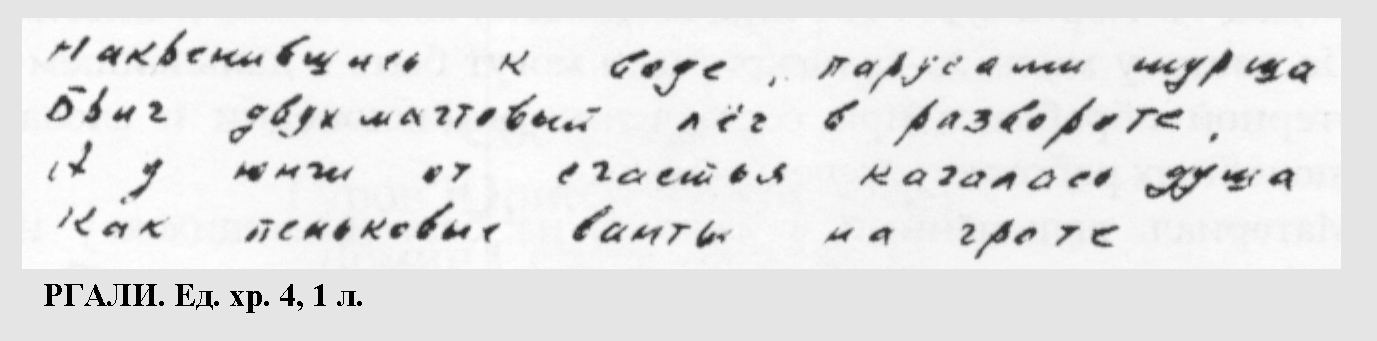 Накренившись к воде, парусами шурша
Бриг двухмачтовый лёг в развороте,
А у юнги от счастья качалась душа
Как пеньковые ванты на гроте
РГАЛИ. Ед. хр. 4, 1 л.